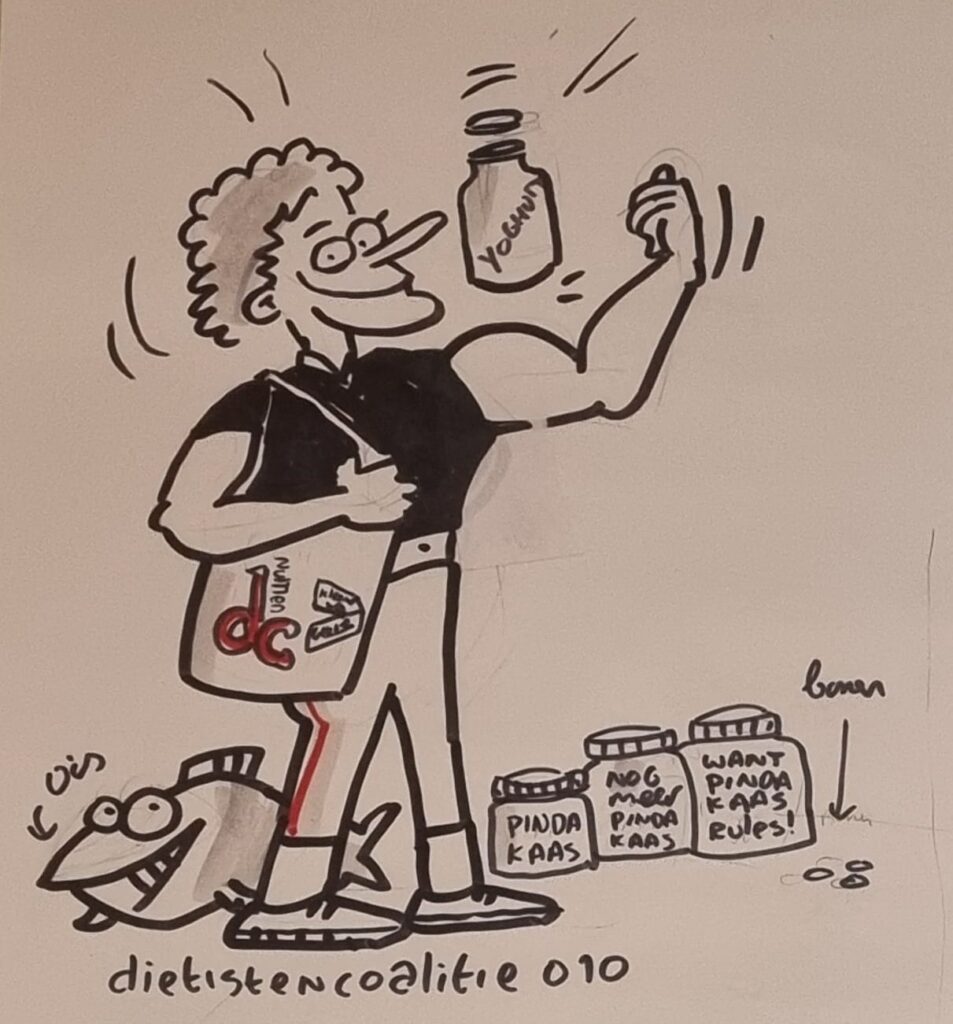 YOGHURT
nutrien
dc
bonen
vis
PINDA
KAAS
NOG
meer
PINDA
KAAS
WANT
PINDA
KAAS
RULES!
dietistencoalitie 010